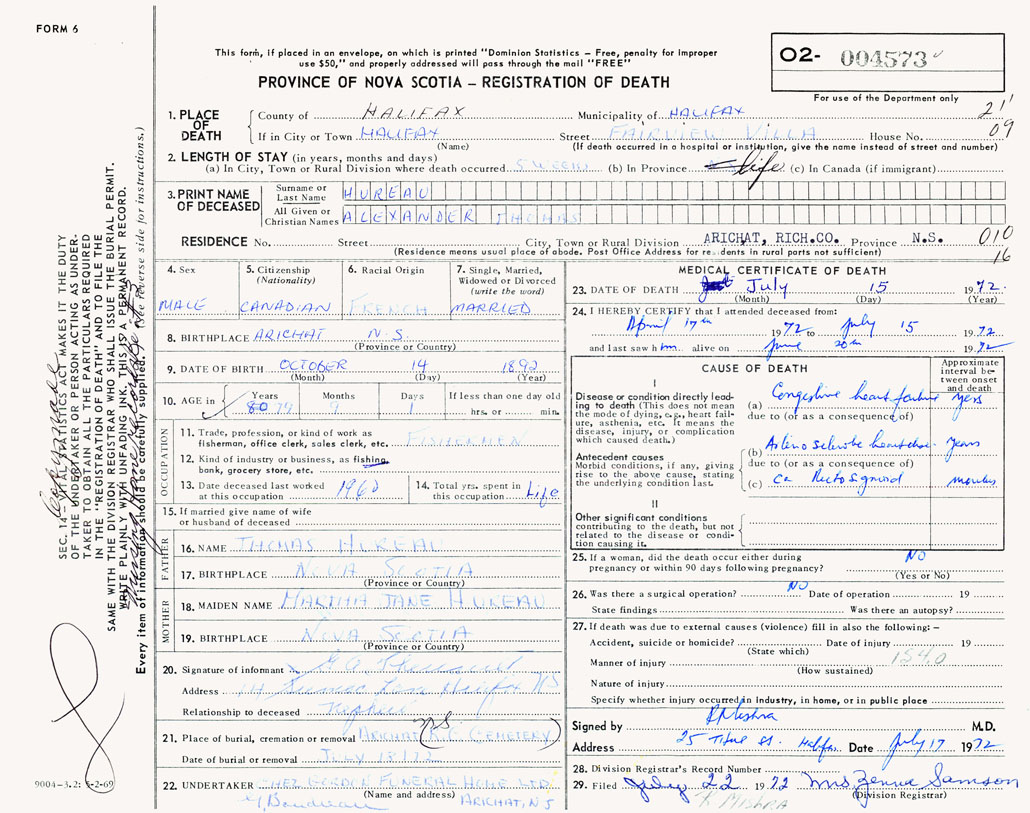 FORM 6
This form, if placed in an envelope, on which is printed "Dominion Statistics – Free, penalty for improper
use $50," and properly addressed will pass through the mail "FREE"
PROVINCE OF NOVA SCOTIA – REGISTRATION OF DEATH
O2- 004573
For use of the Department only
21
09
1. PLACE OF DEATH
County of HALIFAX Municipality of HALIFAX
If in City or Town HALIFAX Street FAIRVIEW VILLA House No.
(Name) (If death occurred in a hospital or institution, give the name instead of street and number)
2. LENGTH OF STAY (in years, months and days)
(a) In City, Town or Rural Division where death occurred 5 WEEKS (b) In Province life (c) In Canada (if immigrant)
3. PRINT NAME OF DECEASED
Surname or Last Name HUREAU
All Given or Christian Names ALEXANDER THOMAS
RESIDENCE No. Street City, Town or Rural Division ARICHAT, RICH.CO. Province N.S. 010
(Residence means usual place of abode. Post Office Address for residents in rural parts not sufficient) 16
4. Sex
MALE
5. Citizenship
(Nationality)
CANADIAN
6. Racial Origin
FRENCH
7. Single, Married,
Widowed or Divorced
(write the word)
MARRIED
8. BIRTHPLACE ARICHAT N.S.
(Province or Country)
9. DATE OF BIRTH OCTOBER 14 1892
(Month) (Day) (Year)
10. AGE in
Years Months Days If less than one day old
80 79 9 1 hrs. or min.
OCCUPATION
11. Trade, profession, or kind of work as
fisherman, office clerk, sales clerk, etc. FISHERMEN
12. Kind of industry or business, as fishing,
bank, grocery store, etc.
13. Date deceased last worked
at this occupation 1960
14. Total yrs. spent in
this occupation Life
15. If married give name of wife
or husband of deceased
FATHER
16. NAME THOMAS HUREAU
17. BIRTHPLACE NOVA SCOTIA
(Province or Country)
MOTHER
18. MAIDEN NAME MARTHA JANE HUREAU
19. BIRTHPLACE NOVA SCOTIA
(Province or Country)
20. Signature of informant
Address 14 Halifax NS
Relationship to deceased Nephew
21. Place of burial, cremation or removal ARICHAT R.C. CEMETERY NS.
Date of burial or removal JULY 18/72
22. UNDERTAKER CHEZ GORDON FUNERAL HOME LTD.
(Name and address) ARICHAT, N.S
MEDICAL CERTIFICATE OF DEATH
23. DATE OF DEATH July 15 1972
(Month) (Day) (Year)
24. I HEREBY CERTIFY that I attended deceased from:
April 17th 1972 to July 15 1972
and last saw him alive on June 20th 1972
CAUSE OF DEATH
Approximate interval between onset and death
I
Disease or condition directly lead-
ing to death (This does not
mean the mode of dying, e.g., heart fail-
ure, asthenia, etc. It means the
disease, injury, or complication
which caused death.)
(a) Congestive heart failure yers
due to (or as a consequence of)
Antecedent causes
Morbid conditions, if any, giving
rise to the above cause, stating
the underlying condition last.
(b) years
due to (or as a consequence of)
(c) Ca Rectosigmoid months
II
Other significant conditions
contributing to the death, but not
related to the disease or condi-
tion causing it.
25. If a woman, did the death occur either during
pregnancy or within 90 days following pregnancy? NO
(Yes or No)
26. Was there a surgical operation? NO Date of operation 19
State findings Was there an autopsy?
27. If death was due to external causes (violence) fill in also the following: –
Accident, suicide or homicide? Date of injury 19
(State which)
Manner of injury 1540
(How sustained)
Nature of injury
Specify whether injury occurred in industry, in home, or in public place
Signed by R Mishra M.D.
Address 25 Halifax Date July 17 1972
28. Division Registrar's Record Number
29. Filed July 22 1972 Mrs Zenna Samson
(Division Registrar)
R MISHRA
SEC. 14 – VITAL STATISTICS ACT MAKES IT THE DUTY
OF THE UNDERTAKER OR PERSON ACTING AS UNDER-
TAKER TO OBTAIN ALL THE PARTICULARS REQUIRED
IN THE "REGISTRATION OF DEATH" AND TO FILE THE
SAME WITH THE DIVISION REGISTRAR WHO SHALL ISSUE THE BURIAL PERMIT.
WRITE PLAINLY WITH UNFADING INK. THIS IS A PERMANENT RECORD.
Every item of information should be carefully supplied. (See reverse side for instructions.)
9004-3.2: 5-2-69